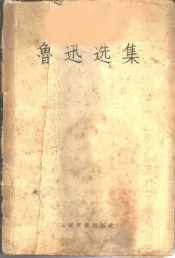 魯迅选集
人民文学出版社